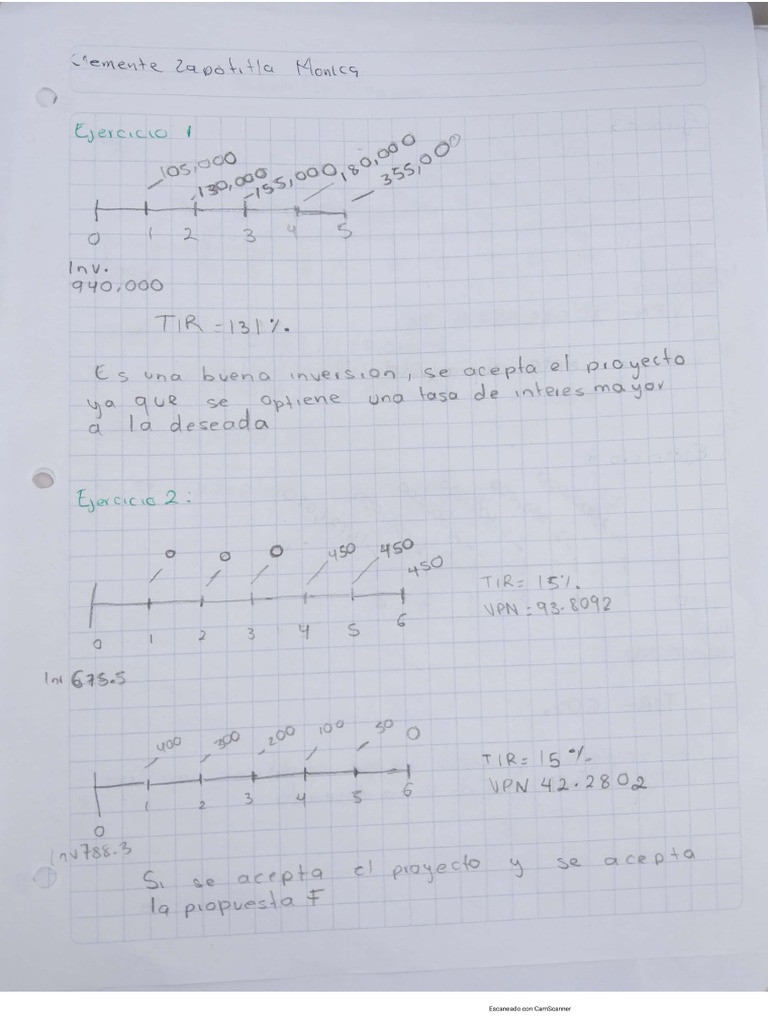 Clemente Zapotitla Monica
Ejercicio 1
105,000
130,000
155,000
180,000
355,000
0 1 2 3 4 5
Inv.
940,000
TIR = 131%.
Es una buena inversion, se acepta el proyecto
ya que se optiene una tasa de interes mayor
a la deseada
Ejercicio 2:
0 0 0 450 450 450
0 1 2 3 4 5 6
TIR = 15%.
VPN = 93.8092
Inv 675.5
400 300 200 100 50 0
0 1 2 3 4 5 6
TIR = 15%.
VPN 42.2802
Inv 788.3
Si se acepta el proyecto y se acepta
la propuesta F
Escaneado con CamScanner